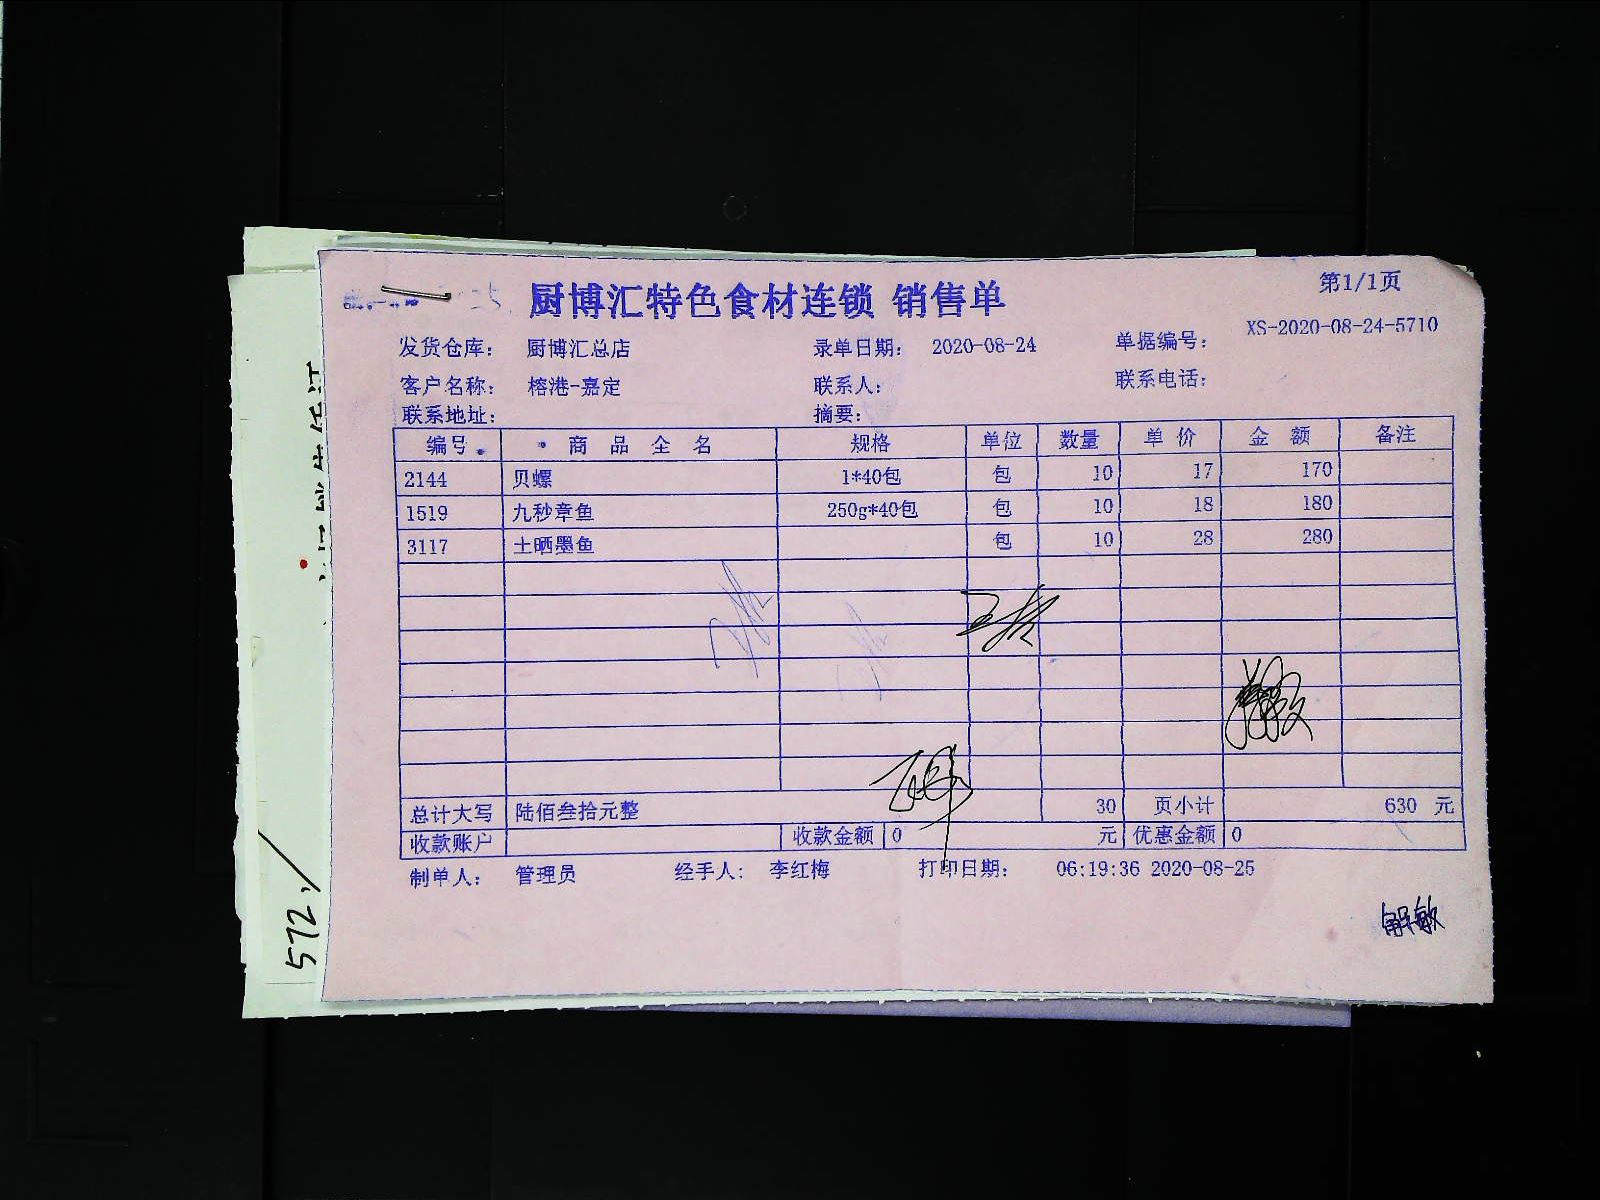 第1/1页
厨博汇特色食材连锁 销售单
发货仓库: 厨博汇总店 录单日期: 2020-08-24 单据编号: XS-2020-08-24-5710
客户名称: 榕港-嘉定 联系人: 联系电话:
联系地址: 摘要:
编号 商品全名 规格 单位 数量 单价 金额 备注
2144 贝螺 1*40包 包 10 17 170
1519 九秒章鱼 250g*40包 包 10 18 180
3117 土晒墨鱼 包 10 28 280
总计大写 陆佰叁拾元整 30 页小计 630 元
收款账户 收款金额 0 元 优惠金额 0
制单人: 管理员 经手人: 李红梅 打印日期: 06:19:36 2020-08-25
解敏
572